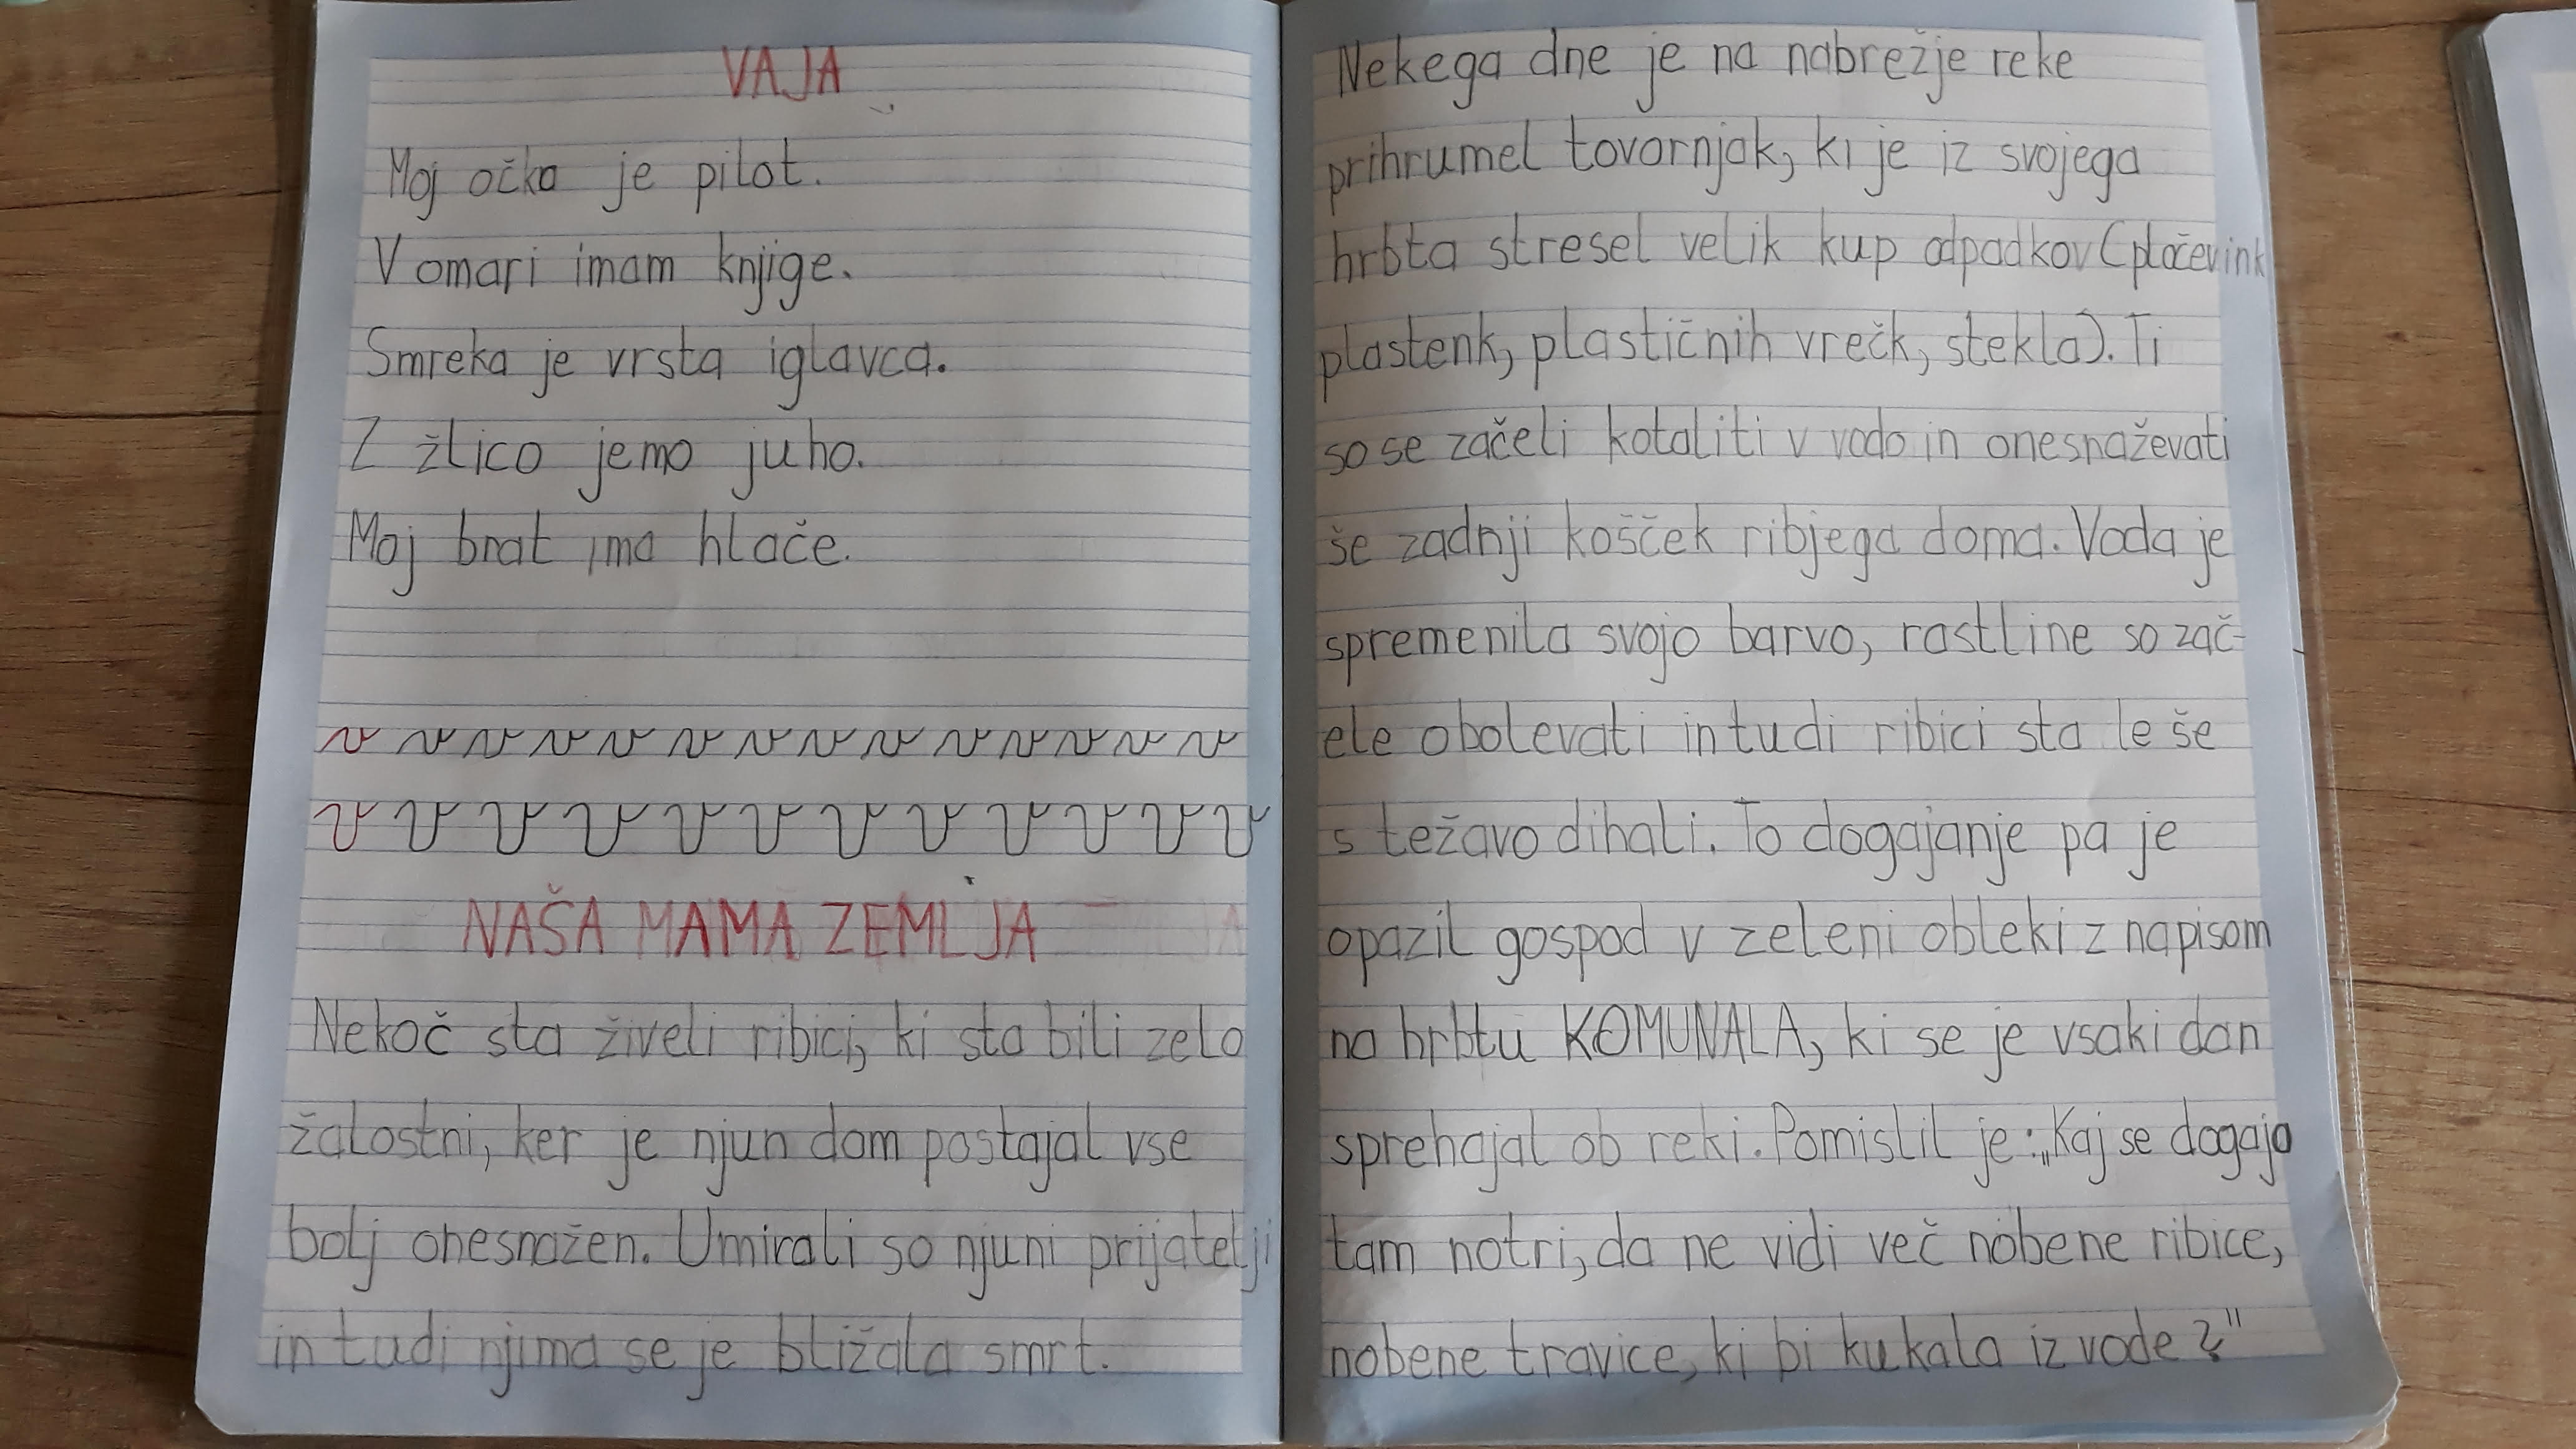 VAJA
Moj očka je pilot.
V omari imam knjige.
Smreka je vrsta iglavca.
Z žlico jemo juho.
Moj brat ima hlače.
v v v v v v v v v v v v v v
v v v v v v v v v v v v
NAŠA MAMA ZEMLJA
Nekoč sta živeli ribici, ki sta bili zelo
žalostni, ker je njun dom postajal vse
bolj onesnažen. Umirali so njuni prijatelji
in tudi njima se je bližala smrt.
Nekega dne je na nabrežje reke
prihrumel tovornjak, ki je iz svojega
hrbta stresel velik kup odpadkov (pločevink
plastenk, plastičnih vrečk, stekla). Ti
so se začeli kotaliti v vodo in onesnaževati
še zadnji košček ribjega doma. Voda je
spremenila svojo barvo, rastline so zač-
ele obolevati in tudi ribici sta le še
s težavo dihali. To dogajanje pa je
opazil gospod v zeleni obleki z napisom
na hrbtu KOMUNALA, ki se je vsaki dan
sprehajal ob reki. Pomislil je: „Kaj se dogaja
tam notri, da ne vidi več nobene ribice,
nobene travice, ki bi kukala iz vode?"